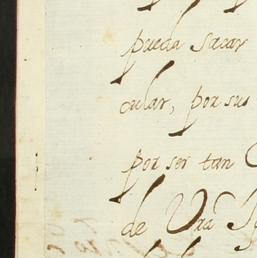 pueda sacar
cular, por sus
por ser tan
de Vra